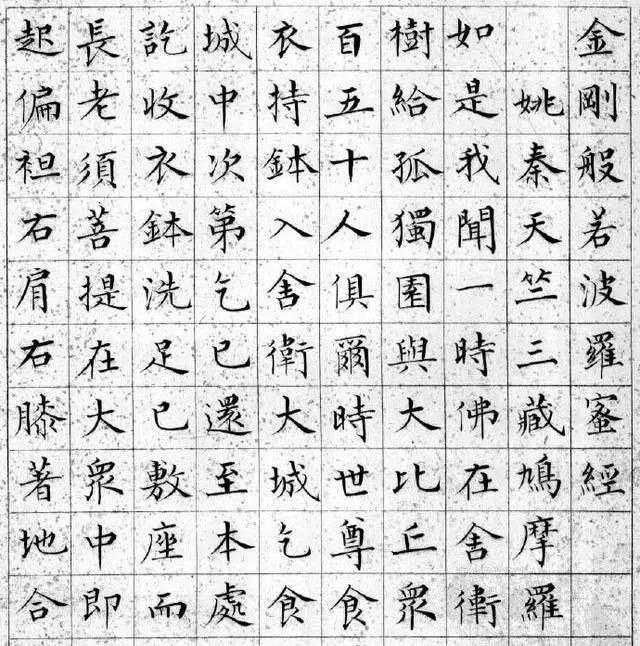 金剛般若波羅蜜經
姚秦天竺三藏鳩摩羅
如是我聞一時佛在舍衛
樹給孤獨園與大比丘眾
百五十人俱爾時世尊食
衣持鉢入舍衛大城乞食
城中次第乞已還至本處
訖收衣鉢洗足已敷座而
長老須菩提在大眾中即
起偏袒右肩右膝著地合